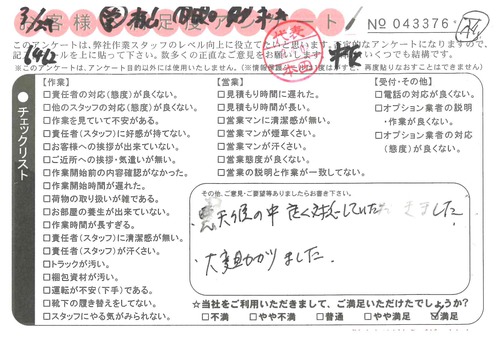 お客様満足度アンケート
No 043376
このアンケートは、弊社作業スタッフのレベル向上に役立てたいと思います。
※このアンケートは、アンケート目的以外には使用いたしません。
チェックリスト
【作業】
□責任者の対応(態度)が良くない。
□他のスタッフの対応(態度)が良くない。
□作業を見ていて不安がある。
□責任者(スタッフ)に好感が持てない。
□お客様への挨拶が出来ていない。
□ご近所への挨拶・気遣いが無い。
□作業開始前の内容確認がなかった。
□作業開始時間が遅れた。
□荷物の取り扱いが雑である。
□お部屋の養生が出来ていない。
□作業時間が長すぎる。
□責任者(スタッフ)に清潔感が無い。
□責任者(スタッフ)が汗くさい。
□トラックが汚い。
□梱包資材が汚い。
□運転が不安(下手)である。
□靴下の履き替えをしてない。
□スタッフにやる気がみられない。
【営業】
□見積もり時間に遅れた。
□見積もり時間が長い。
□営業マンに清潔感が無い。
□営業マンが煙草くさい。
□営業マンが汗くさい。
□営業態度が良くない。
□営業の説明と作業が一致してない。
【受付・その他】
□電話の対応が良くない。
□オプション業者の説明・作業が良くない。
□オプション業者の対応(態度)が良くない。
その他、ご意見・ご要望等ありましたらお書き下さい。
悪天候の中 良く対応していただきました
大変助かりました.
☆当社をご利用いただきまして、ご満足いただけたでしょうか?
□不満 □やや不満 □普通 □やや満足 ☑満足